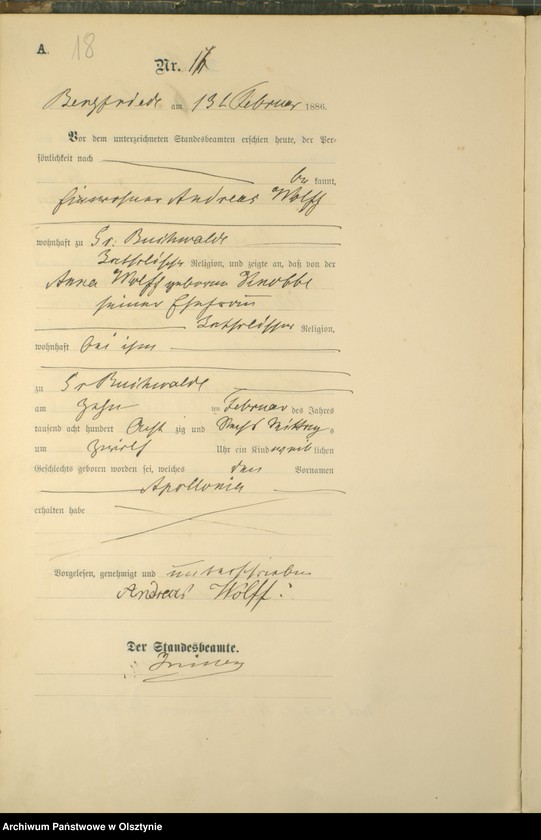 A. 18
Nr. 17
Bergfriede am 13 t Februar 1886.
Vor dem unterzeichneten Standesbeamten erschien heute, der Per-
sönlichkeit nach
be kannt,
Einwohner Andreas Wolff
wohnhaft zu Gr. Buchwalde
Katholischer Religion, und zeigte an, daß von der
Anna Wolff geborene
seiner Ehefrau
Katholischer Religion,
wohnhaft bei ihm
zu Gr Buchwalde
am zehn ten Februar des Jahres
tausend acht hundert Acht zig und Sechs Mittags
um zwölf Uhr ein Kind weib lichen
Geschlechts geboren worden sei, welches den Vornamen
Apollonia
erhalten habe
Vorgelesen, genehmigt und unterschrieben
Andreas Wolff.
Der Standesbeamte.
Archiwum Państwowe w Olsztynie